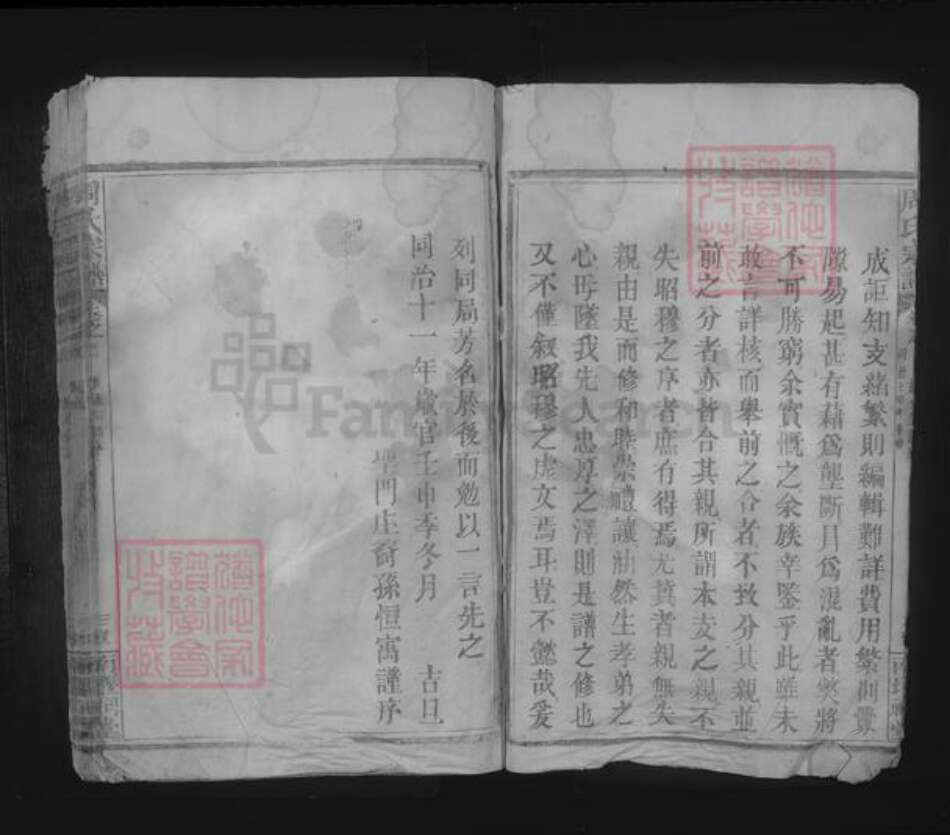 成詎知支繁則編輯難詳費用繁則釁
隙易起甚有藉為壟斷且為混亂者弊將
不可勝窮余實慨之余族幸鑒乎此雖未
敢言詳核而舉前之合者不致分其親並
前之分者亦皆合其親所謂本支之親不
失昭穆之序者庶有得焉尤冀者親無失
親由是而修和睦崇禮讓油然生孝弟之
心毋墜我先人忠厚之澤則是譜之修也
又不僅敘昭穆之虛文焉耳豈不懿哉爰
列同局芳名於後而勉以一言先之
同治十一年歲官壬申季冬月 古旦
門庄裔孫恒寓謹序
周氏宗譜
周氏宗譜 卷之一
FamilySearch